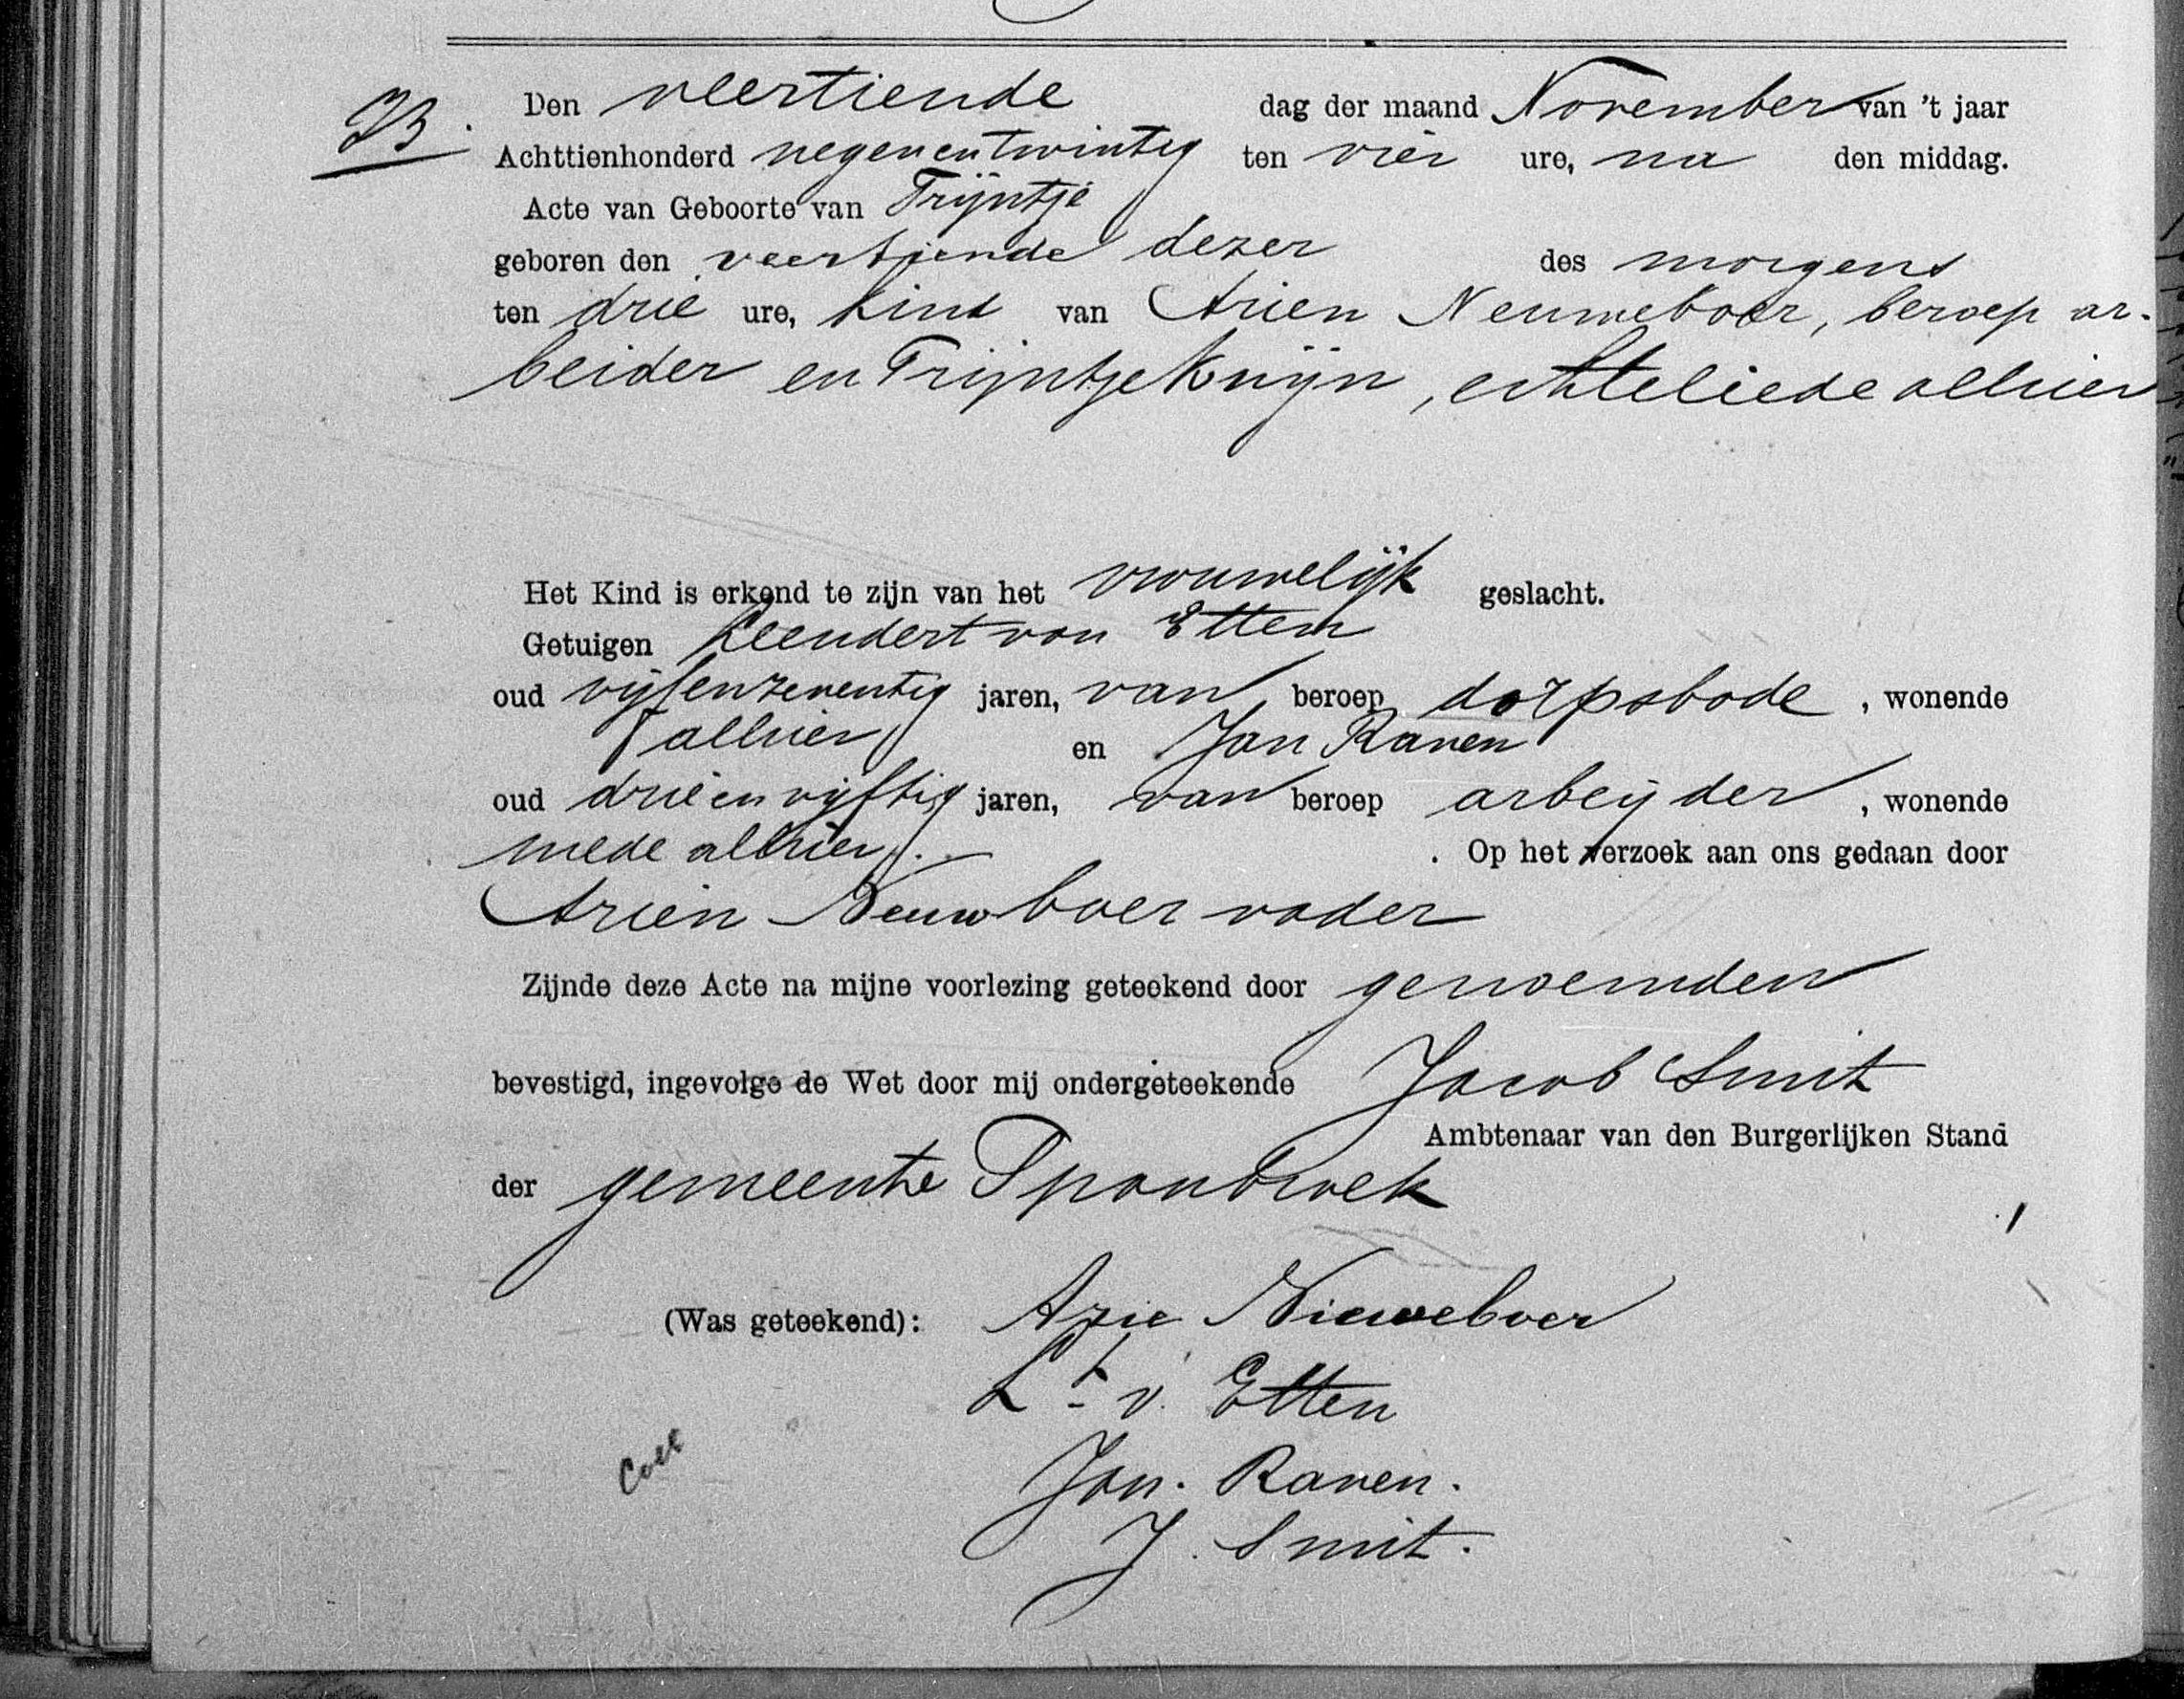 73.
Den veertiende dag der maand November van 't jaar
Achttienhonderd negenentwintig ten vier ure, na den middag.
Acte van Geboorte van Trijntje
geboren den veertiende dezer des morgens
ten drie ure, kind van Arien Neuweboer, beroep ar-
beider en Trijntje Knijn, echteliede alhier
Het Kind is erkend te zijn van het vrouwelijk geslacht.
Getuigen Leendert van Etten
oud vijfenzeventig jaren, van beroep dorpsbode, wonende
alhier en Jan Raven
oud drieenvijftig jaren, van beroep arbeijder, wonende
mede alhier. . Op het verzoek aan ons gedaan door
Arien Neuwboer vader
Zijnde deze Acte na mijne voorlezing geteekend door genoemden
bevestigd, ingevolge de Wet door mij ondergeteekende Jacob Smit
Ambtenaar van den Burgerlijken Stand
der gemeente Spanbroek
(Was geteekend): Arie Nieweboer
Lt v. Etten
Jan. Raven.
J. Smit.
Coll